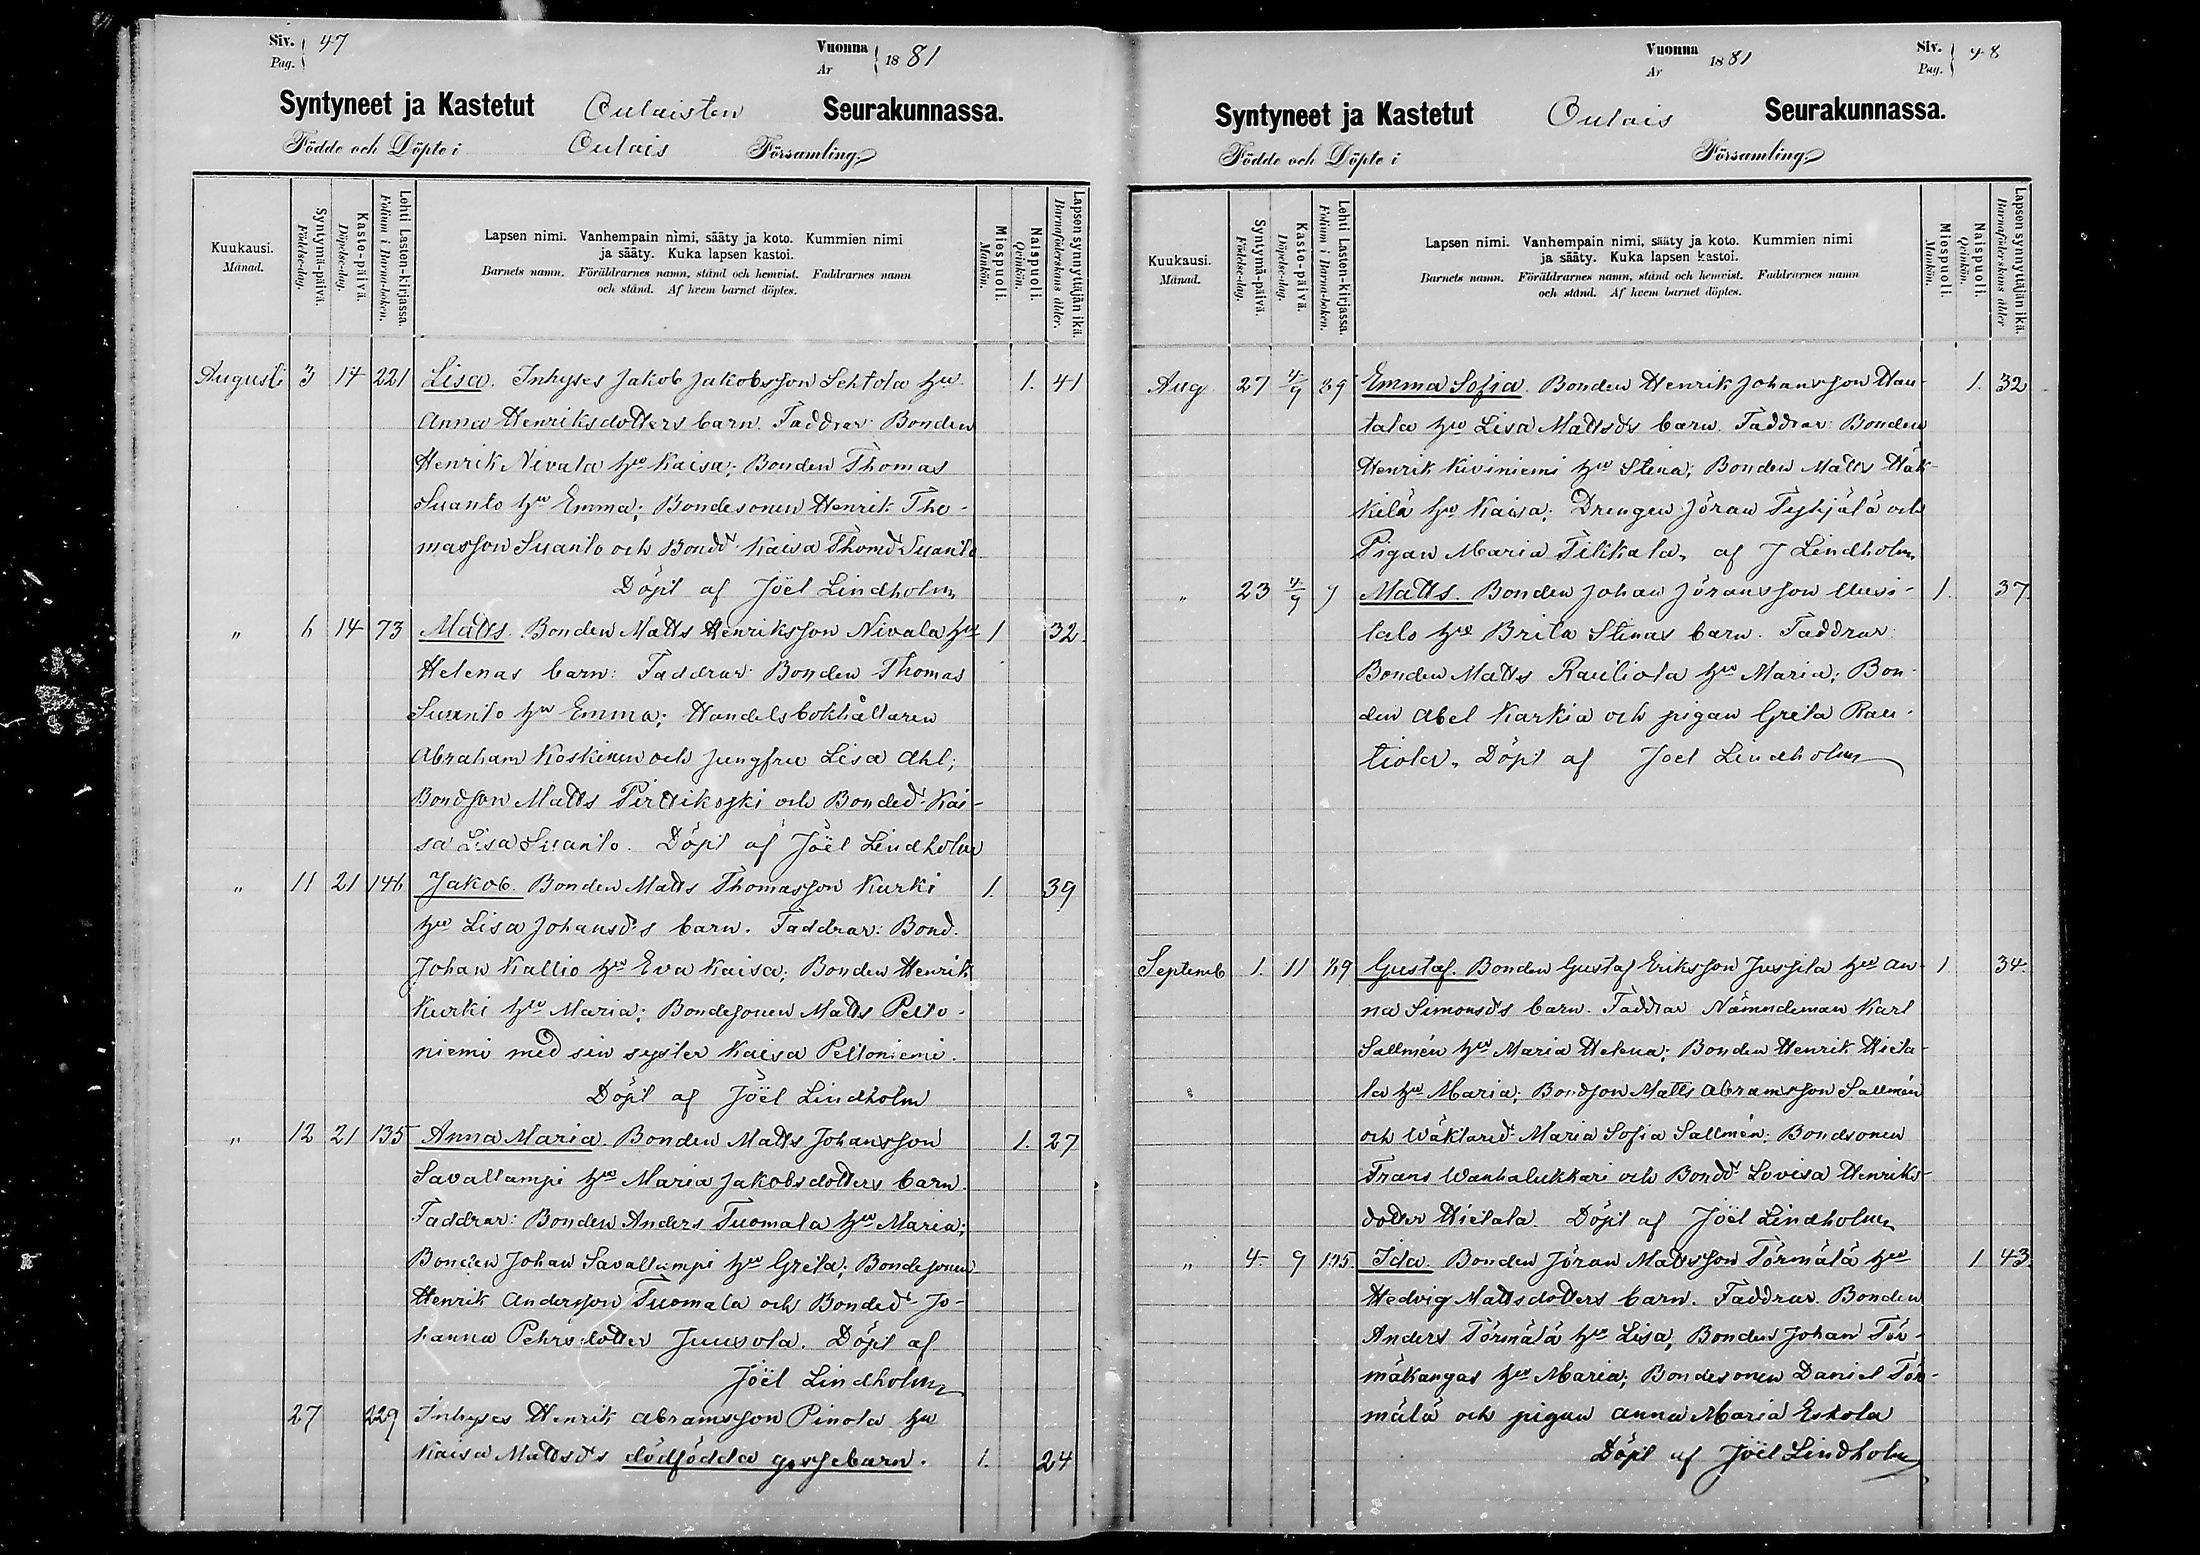 Siv. 47
Pag.
Vuonna 1881
År
Syntyneet ja Kastetut Oulaisten Seurakunnassa.
Födde och Döpte i Oulais Församling.
Kuukausi. Månad.
Syntymä-päivä. Födelse-dag.
Kasto-päivä. Döpelse-dag.
Lehti Lasten-kirjassa. Folium i Barna-boken.
Lapsen nimi. Vanhempain nimi, sääty ja koto. Kummien nimi
ja sääty. Kuka lapsen kastoi.
Barnets namn. Föräldrarnes namn, stånd och hemvist. Faddrarnes namn
och stånd. Af hvem barnet döptes.
Miespuoli. Mankön.
Naispuoli. Qvinkön.
Lapsen synnyttäjän ikä. Barnaföderskans ålder.
Augusti 3 14 221 Lisa. Inhyses Jakob Jakobsson Lehtola hu 1. 41
Anna Henriksdotters barn. Faddrar: Bonden
Henrik Nivala hu Kaisa; Bonden Thomas
Suanto hu Emma; Bondesonen Henrik Tho-
masson Suanto och Bondd. Kaisa Thomd Suanto
Döpt af Joël Lindholm
" 6 14 73 Matts. Bonden Matts Henriksson Nivala hu 1 32.
Helenas barn: Faddrar: Bonden Thomas
Suanto hu Emma; Handelsbokhållaren
Abraham Koskinen och Jungfru Lisa Ahl;
Bondson Matts Pirttikoski och Bonded. Kai-
sa Lisa Suanto. Döpt af Joël Lindholm
" 11 21 146 Jakob. Bonden Matts Thomasson Kurki 1. 39
hu Lisa Johansd:s barn. Faddrar: Bond.
Johan Kallio hu Eva Kaisa; Bonden Henrik
Kurki hu Maria; Bondesonen Matts Pelto-
niemi med sin syster Kaisa Peltoniemi.
Döpt af Joël Lindholm
" 12 21 135 Anna Maria. Bonden Matts Johansson 1. 27
Savallampi hu Maria Jakobsdotters barn.
Faddrar: Bonden Anders Tuomala hu Maria;
Bonden Johan Savallampi hu Greta; Bondesonen
Henrik Andersson Tuomala och Bonded. Jo-
hanna Pehrsdotter Juusola. Döpt af
Joël Lindholm
27 229 Inhyses Henrik Abramsson Pinola hu
Kaisa Mattsd:s dödfödda gossebarn. 1. 24
Vuonna 1881
År
Siv. 48
Pag.
Syntyneet ja Kastetut Oulais Seurakunnassa.
Födde och Döpte i Församling.
Kuukausi. Månad.
Syntymä-päivä. Födelse-dag.
Kasto-päivä. Döpelse-dag.
Lehti Lasten-kirjassa. Folium i Barna-boken.
Lapsen nimi. Vanhempain nimi, sääty ja koto. Kummien nimi
ja sääty. Kuka lapsen kastoi.
Barnets namn. Föräldrarnes namn, stånd och hemvist. Faddrarnes namn
och stånd. Af hvem barnet döptes.
Miespuoli. Mankön.
Naispuoli. Qvinkön.
Lapsen synnyttäjän ikä. Barnaföderskans ålder
Aug. 27 4/9 39 Emma Sofia. Bonden Henrik Johansson Hau- 1. 32
tala hu Lisa Mattsd:s barn. Faddrar: Bonden
Henrik Kiviniemi hu Stina; Bonden Matts Häk-
kilä hu Kaisa; Drengen Jöran Tyhjälä och
Pigan Maria Tilikala. af J Lindholm
" 23 4/9 7 Matts. Bonden Johan Jöransson Uusi- 1. 37
talo hu Brita Stinas barn. Faddrar:
Bonden Matts Rautiola hu Maria; Bon-
den Abel Karkia och pigan Greta Rau-
tiola. Döpt af Joel Lindholm
Septemb 1. 11 39 Gustaf. Bonden Gustaf Eriksson Jussila hu An- 1 34
na Simonsd:s barn. Faddrar Nämndeman Karl
Sallmén hu Maria Helena; Bonden Henrik Hieta-
la hu Maria; Bondson Matts Abramsson Sallmén
och Wäktared. Maria Sofia Sallmén; Bondsonen
Frans Wanhalukkari och Bondd. Lovisa Henriks-
dotter Hietala. Döpt af Joël Lindholm
" 4 9 135 Ida. Bonden Jöran Mattsson Törmälä hu 1 43
Hedvig Mattsdotters barn. Faddrar. Bonden
Anders Törmälä hu Lisa, Bonden Johan Tör-
mäkangas hu Maria; Bondesonen Daniel Tör-
mälä och pigan Anna Maria Eskola
Döpt af Joël Lindholm